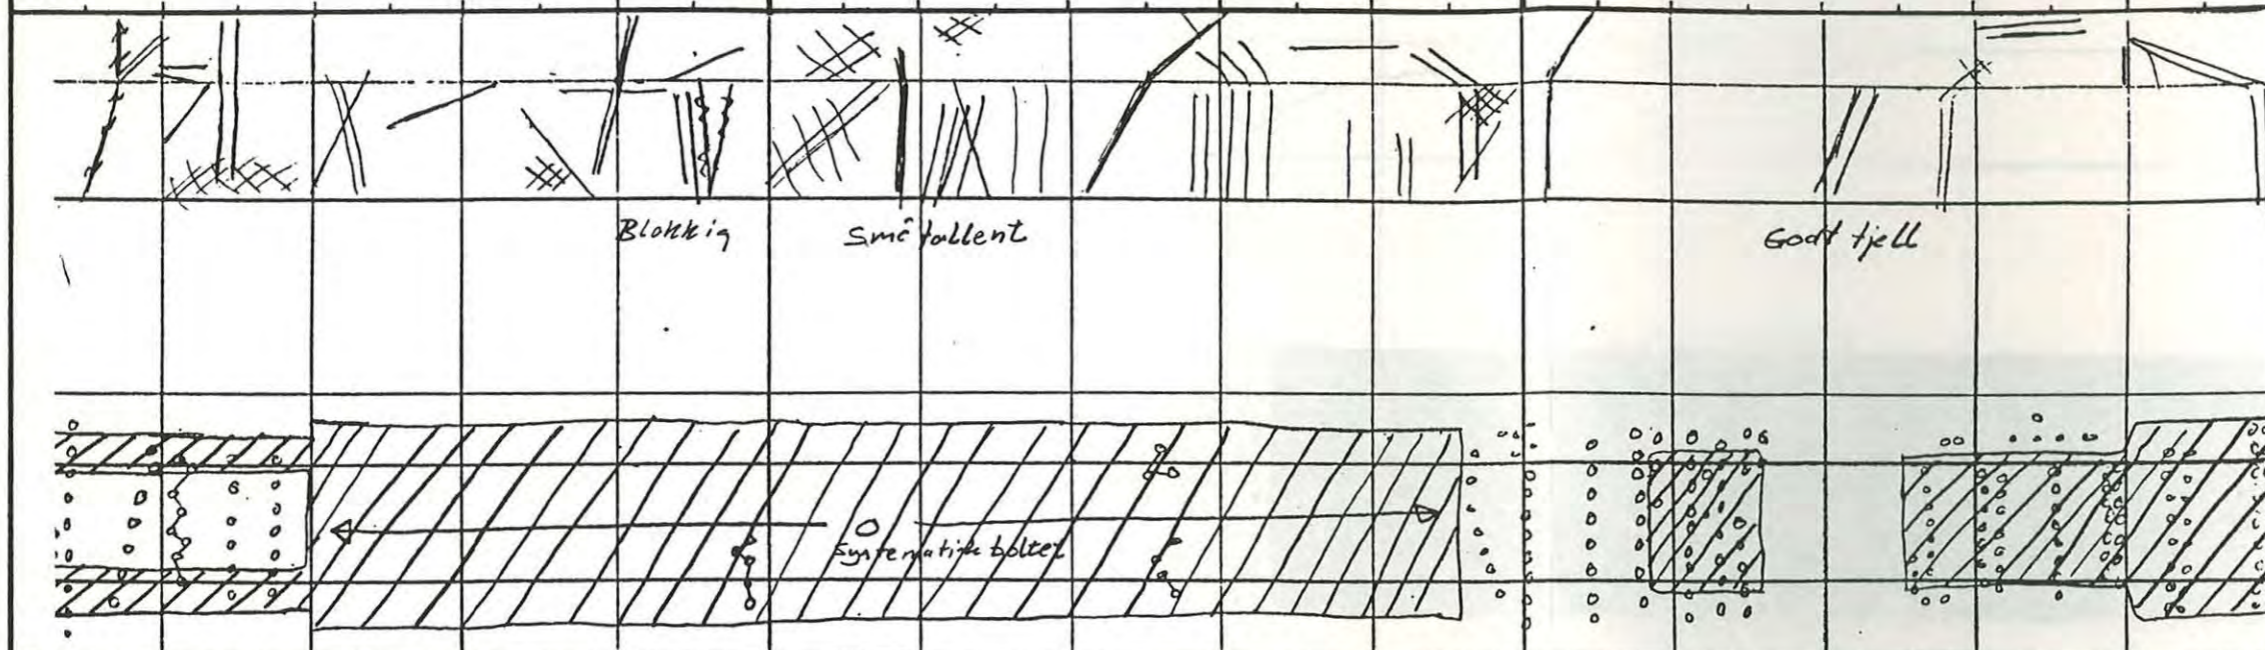 Blokkig
Småfallent
Godt fjell
Systematisk boltet